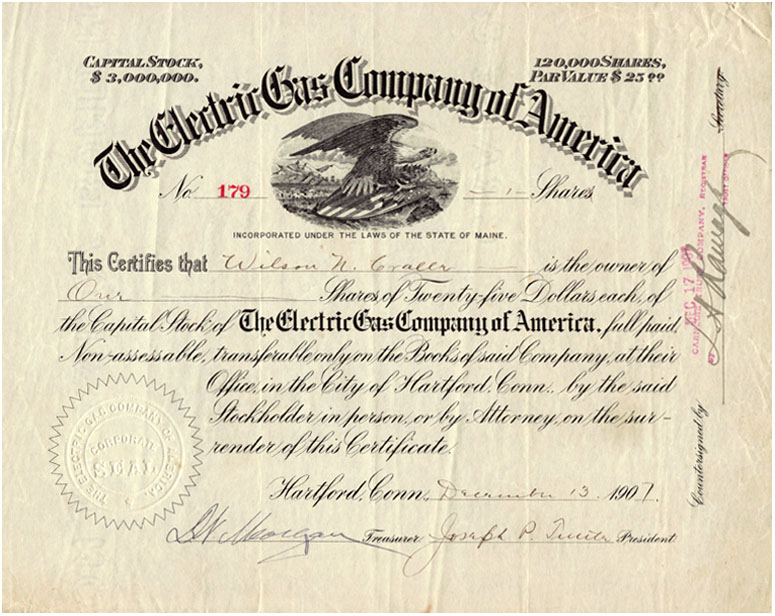 CAPITAL STOCK,
$3,000,000.
120,000 SHARES,
PAR VALUE $25 00
The Electric Gas Company of America
No. 179
— 1 — Shares
INCORPORATED UNDER THE LAWS OF THE STATE OF MAINE.
This Certifies that Wilson N. is the owner of
One Shares of Twenty-five Dollars each, of
the Capital Stock of The Electric Gas Company of America, full paid,
Non-assessable, transferable only on the Books of said Company, at their
Office, in the City of Hartford, Conn., by the said
Stockholder in person, or by Attorney, on the sur-
render of this Certificate.
Hartford, Conn., December 13, 1907.
Treasurer Joseph P. President
THE ELECTRIC GAS COMPANY OF AMERICA
CORPORATE
SEAL
Countersigned by
Secretary
COMPANY, REGISTRAR
DEC 17